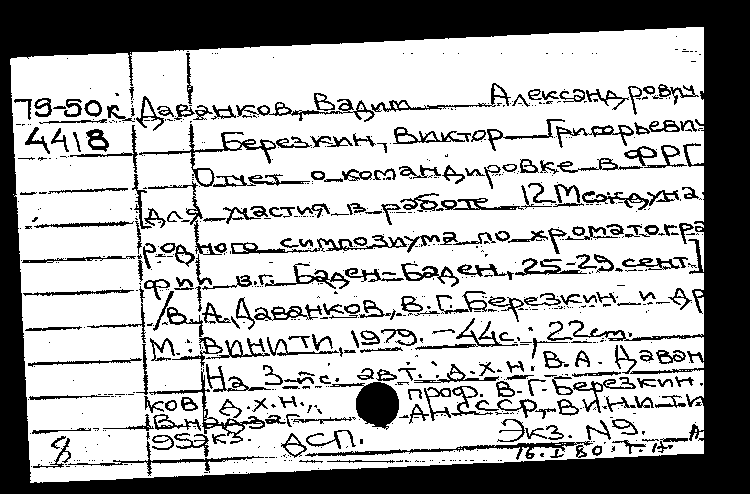 79-50к Даванков, Вадим Александрович,
4418 Березкин, Виктор Григорьевич
Отчет о командировке в ФРГ
[для участия в работе 12 Междуна-
родного симпозиума по хроматогра
фии в г. Баден-Баден, 25-29 сент.]
/В. А. Даванков, В. Г. Березкин и др
М.: ВИНИТИ, 1979. – 44с.; 22см.
На 3-й с. авт.: д.х.н. В.А. Даван
ков, д.х.н., проф. В. Г. Березкин.
В надзаг.: АН СССР, ВИНИТИ
95экз. ДСП. Экз. N9.
8 16. I 80. т. А.